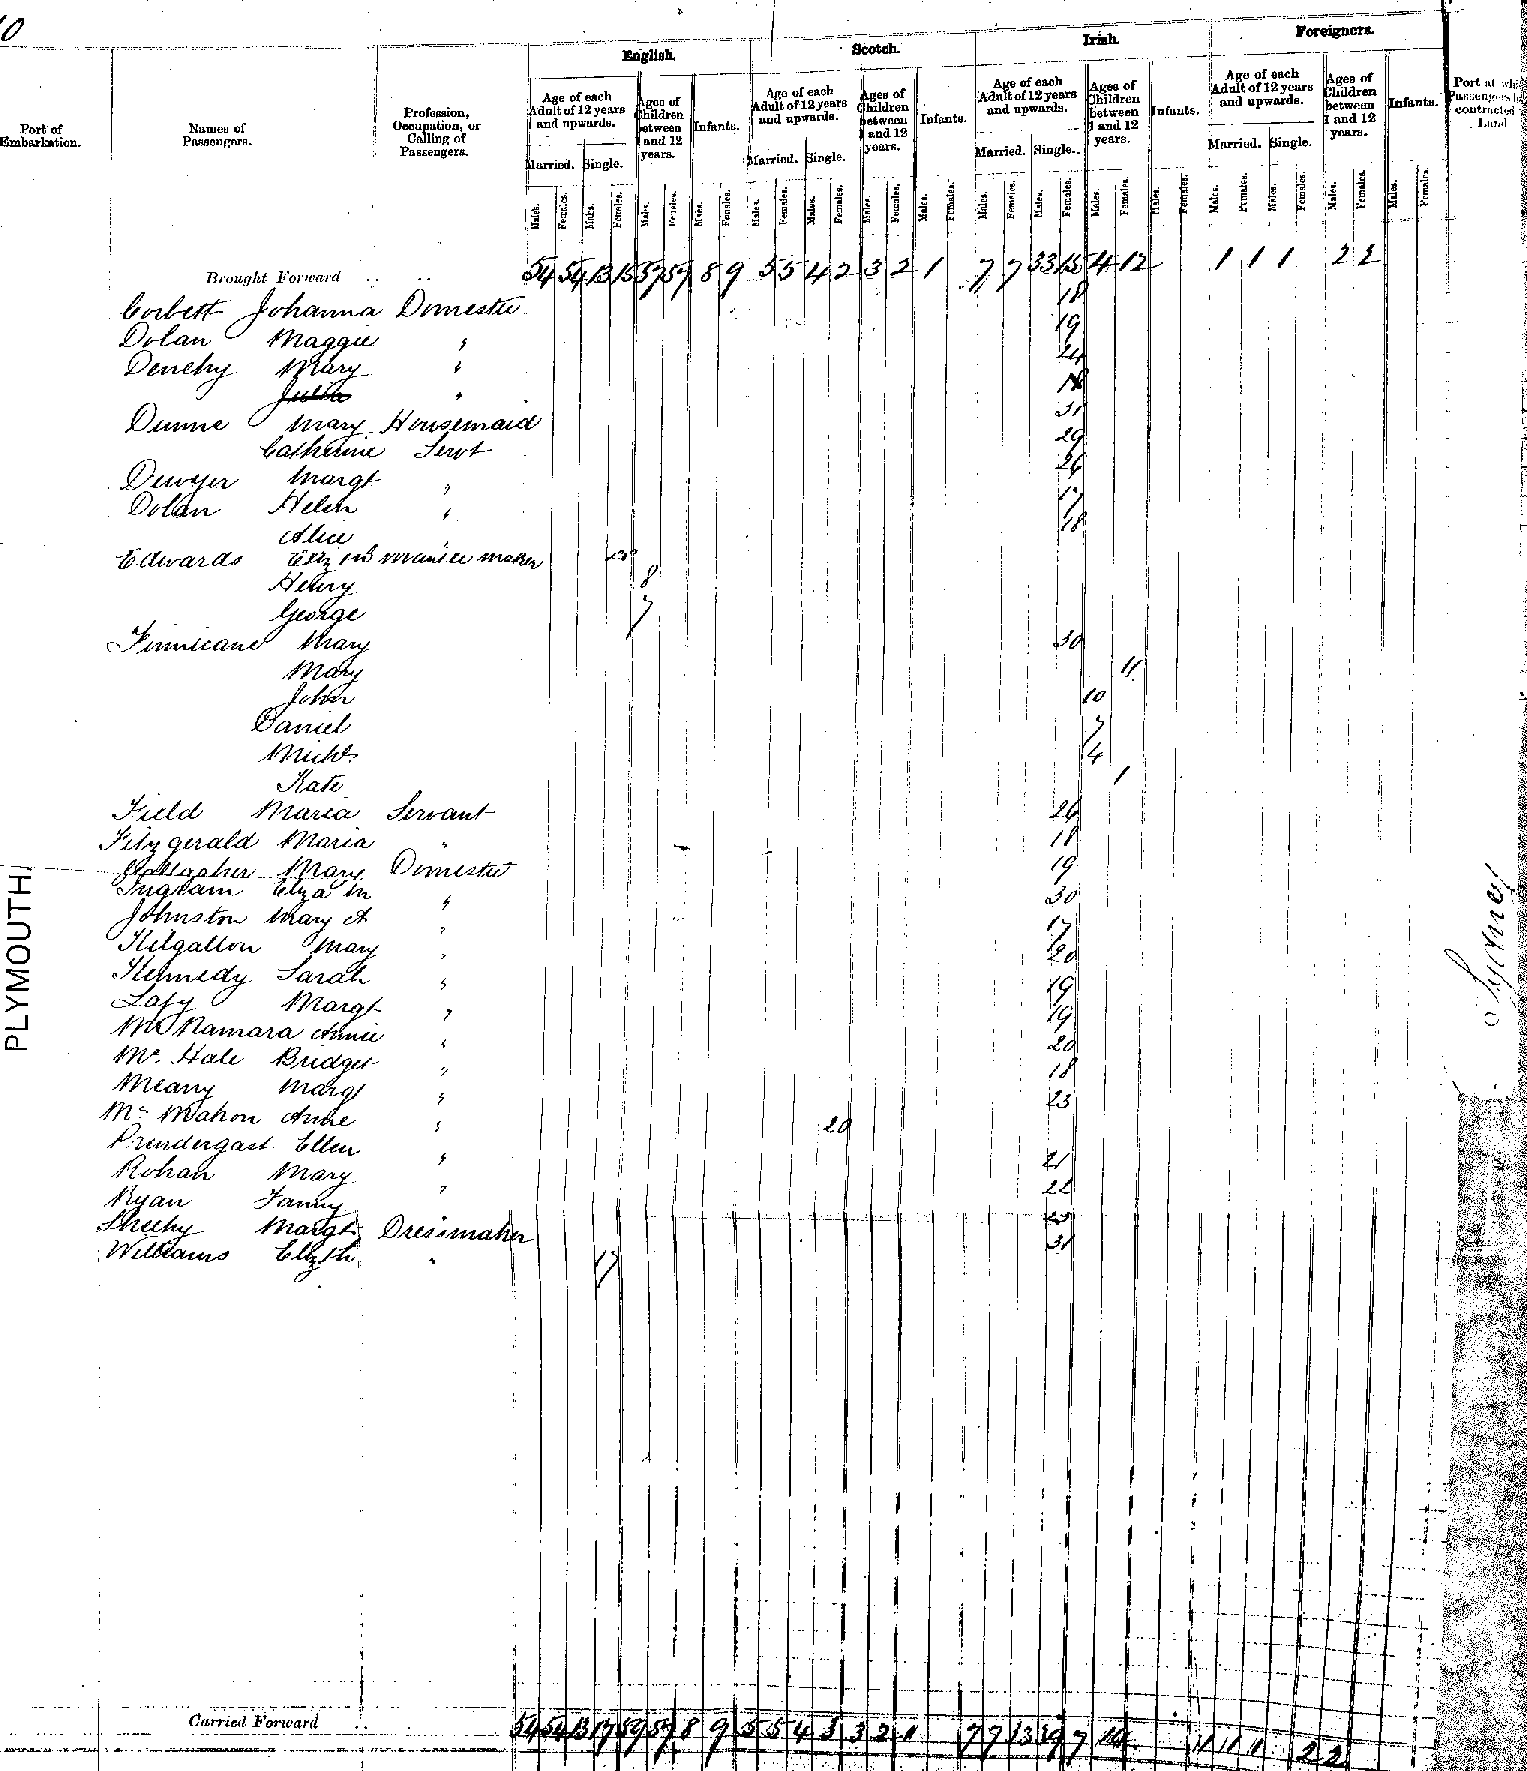 10
English. Scotch. Irish. Foreigners.
Port of Embarkation. Names of Passengers. Profession, Occupation, or Calling of Passengers. Age of each Adult of 12 years and upwards. Ages of Children between 1 and 12 years. Infants. Age of each Adult of 12 years and upwards. Ages of Children between 1 and 12 years. Infants. Age of each Adult of 12 years and upwards. Ages of Children between 1 and 12 years. Infants. Age of each Adult of 12 years and upwards. Ages of Children between 1 and 12 years. Infants. Port at Passengers contracted Land
Married. Single. Married. Single. Married. Single. Married. Single.
Males. Females. Males. Females. Males. Females. Males. Females. Males. Females. Males. Females. Males. Females. Males. Females. Males. Females. Males. Females. Males. Females. Males. Females. Males. Females. Males. Females. Males. Females. Males. Females.
Brought Forward 54 54 13 15 57 57 8 9 5 5 4 2 3 2 1 7 7 33 15 4 12 1 1 1 2 2
Corbett Johanna Domestic 18
Dolan Maggie " 19
Denehy Mary " 24
Julia " 18
Dunne Mary Housemaid 31
Catherine Servt 29
Dewyer Margt " 26
Dolan Helen " 17
Alice " 18
Edwards Eliz mantle maker
Henry 8
George 7
Finnicane Mary 30
Mary 11
John 10
Daniel 7
Michl. 4
Kate 1
Field Maria Servant 26
Fitzgerald Maria " 18
Gallagher Mary Domestic 19
Ingram Eliza M " 30
Johnston Mary A " 17
Kilgallon Mary " 20
Kennedy Sarah " 19
Lafy Margt " 19
McNamara Annie " 20
Mc. Hale Bridget " 18
Meany Margt " 23
Mc Mahon Anne " 20
Prendergast Ellen " 21
Rohan Mary " 22
Ryan Fanny 23
Sheehy Margt Dressmaker 31
Williams Elizth " 17
PLYMOUTH
Sydney
Carried Forward 54 54 13 17 59 57 8 9 5 5 4 3 3 2 1 7 7 13 39 7 14 1 1 1 2 2